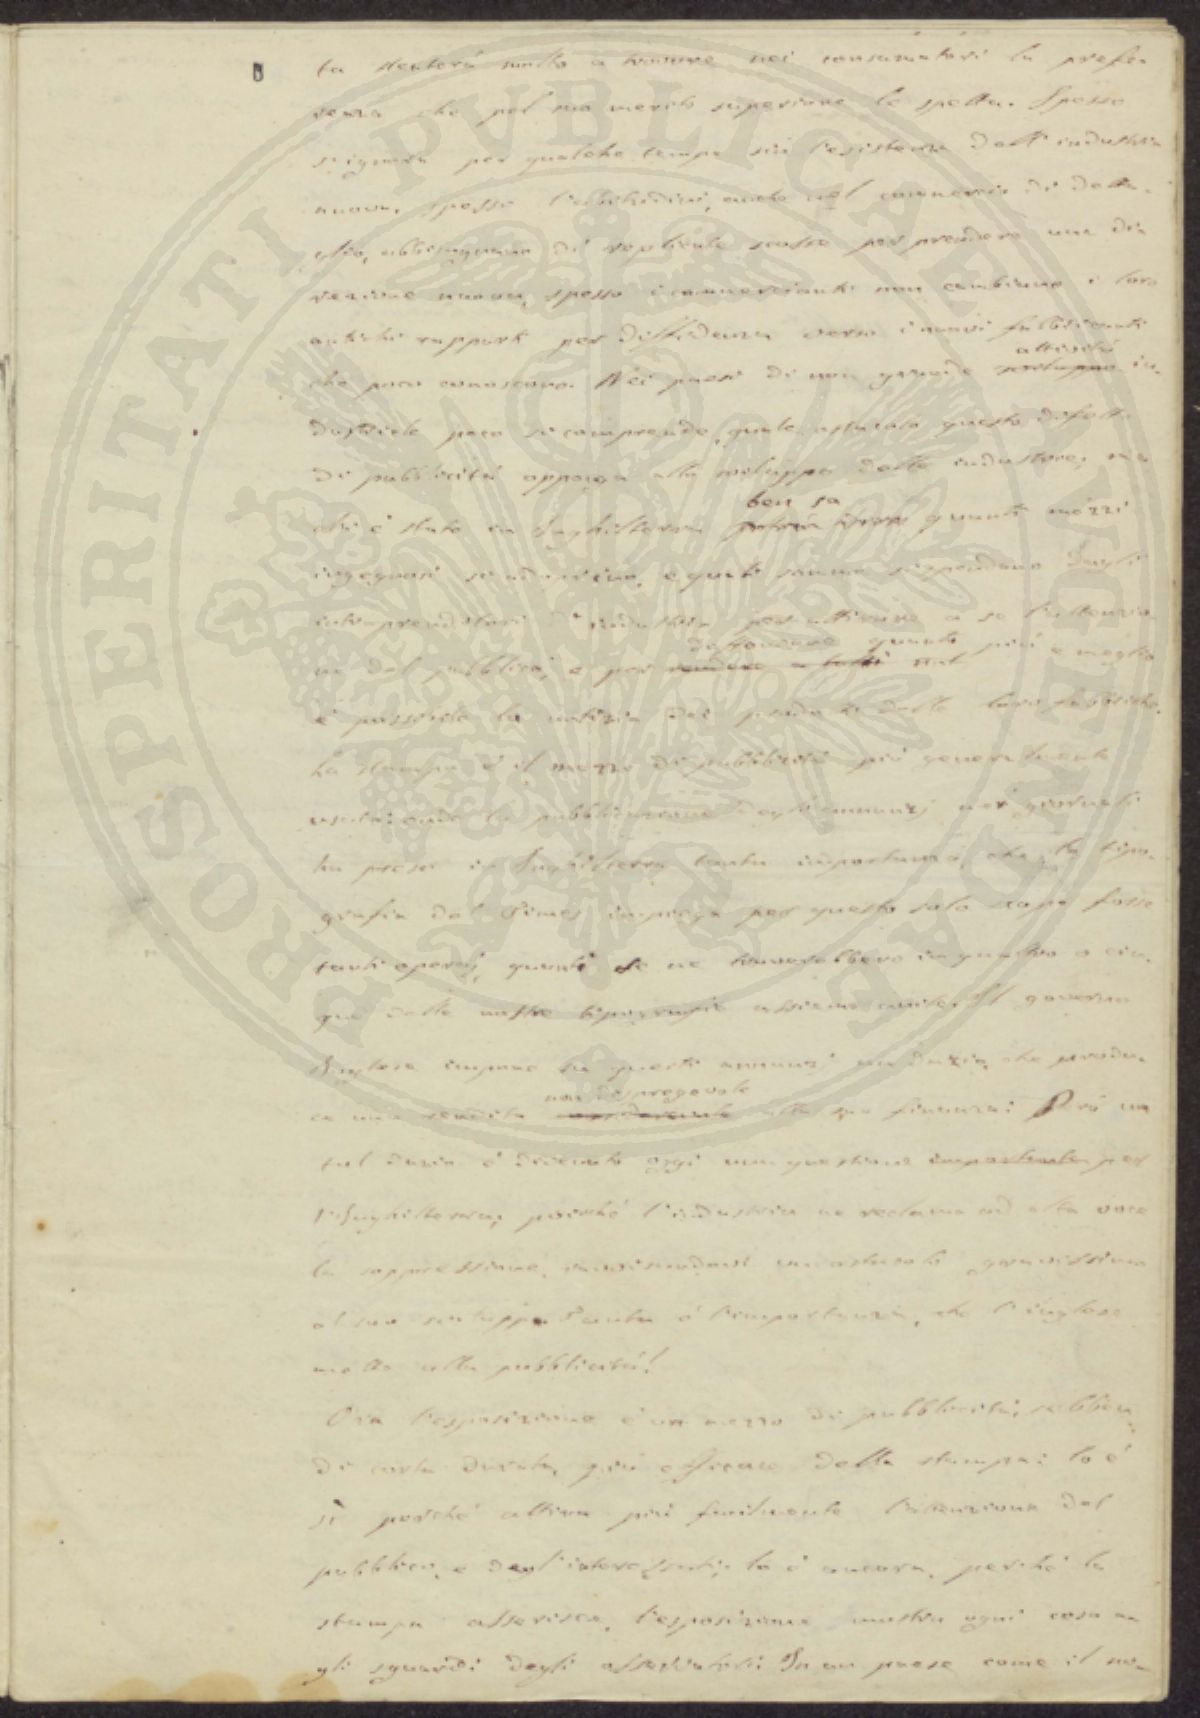 ta stenterà molto a trovare nei consumatori la prefe-
renza che pel suo merito superiore le spetta. Spesso
s'ignora per qualche tempo sin l'esistenza dell'industria
nuova, spesso l'abitudini, anche nel commercio di detta-
glio, abbisognano di replicate scosse per prendere una di-
rezione nuova, spesso i commercianti non cambiano i loro
antichi rapporti per diffidenza verso i nuovi fabbricanti
che poco conoscono. Nei paesi di non grande sviluppo attività in-
dustriale poco si comprende, quale ostacolo questo difetto
di pubblicità opponga allo sviluppo delle industrie, ma
chi è stato in Inghilterra ben sa quanti mezzi
ingegnosi si adoprino, e quali somme si spendano dagli
intraprenditori d'industria per attirare a se l'attenzio-
ne del pubblico, e per rendere a tutti diffondere quanto più e meglio
è possibile la notizia dei prodotti delle loro fabbriche.
La stampa è il mezzo di pubblicità più generalmente
usato; onde la pubblicazione degli annunzj nei giornali
ha preso in Inghilterra tanta importanza, che la tipo-
grafia del Times impiega per questo solo ramo forse
tanti operaj, quanti se ne troverebbero in quattro o cin-
que delle nostre tipografie assieme unite. Il governo
Inglese impone su questi annunzj un dazio, che produ-
ce una rendita considerevole non dispregevole alle sue finanze; Però un
tal dazio è divenuto oggi una questione importante per
l'Inghilterra, poichè l'industria ne reclama ad alta voce
la soppressione, ravvisandovi un ostacolo gravissimo
al suo sviluppo. Tanta è l'importanza, che l'inglese
mette alla pubblicità!
Ora l'esposizione è un mezzo di pubblicità, sebbene
di corta durata, più efficace della stampa: lo è
sì perchè attira più facilmente l'attenzione del
pubblico, e degl'interessati; lo è ancora, perchè la
stampa asserisce, l'esposizione mostra ogni cosa a-
gli sguardi degli osservatori. In un paese come il no-
PROSPERITATI PVBLICAE AVGENDAE